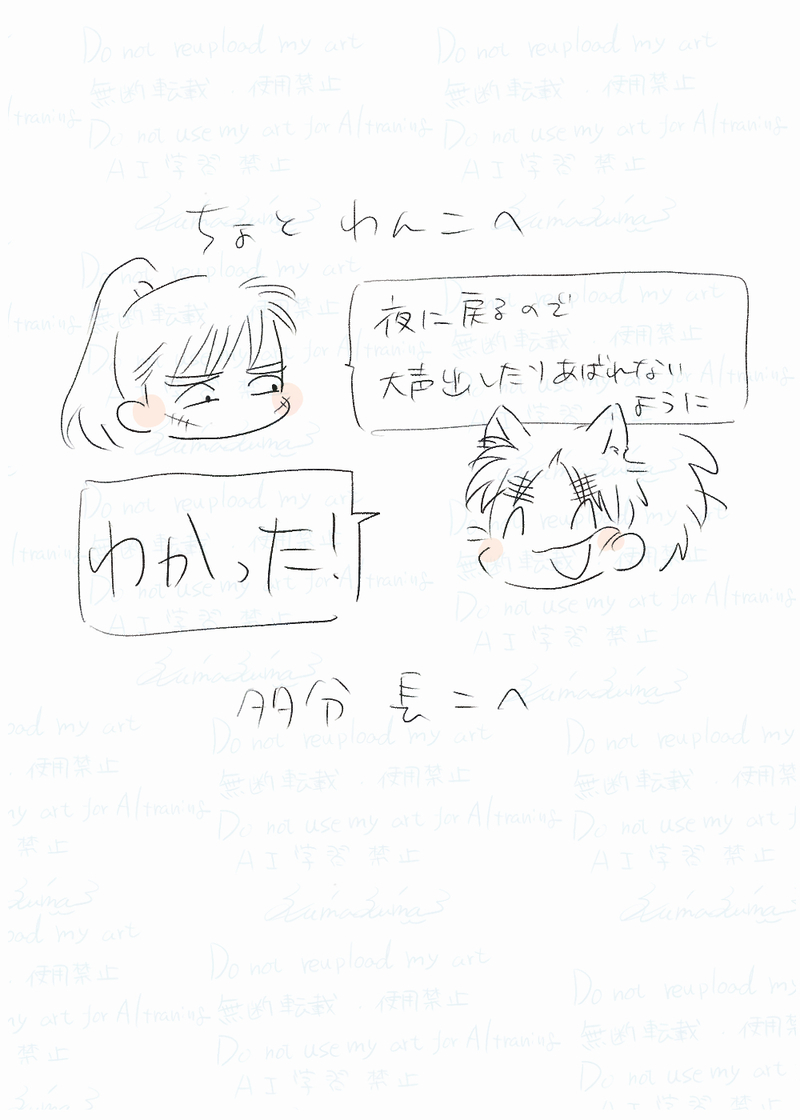 Do not reupload my art
無断転載．使用禁止
Do not use my art for AI traning
AI学習禁止
ちょと わんこへ
夜に戻るので
大声出したりあばれない
ように
わかった!
多分 長こへ